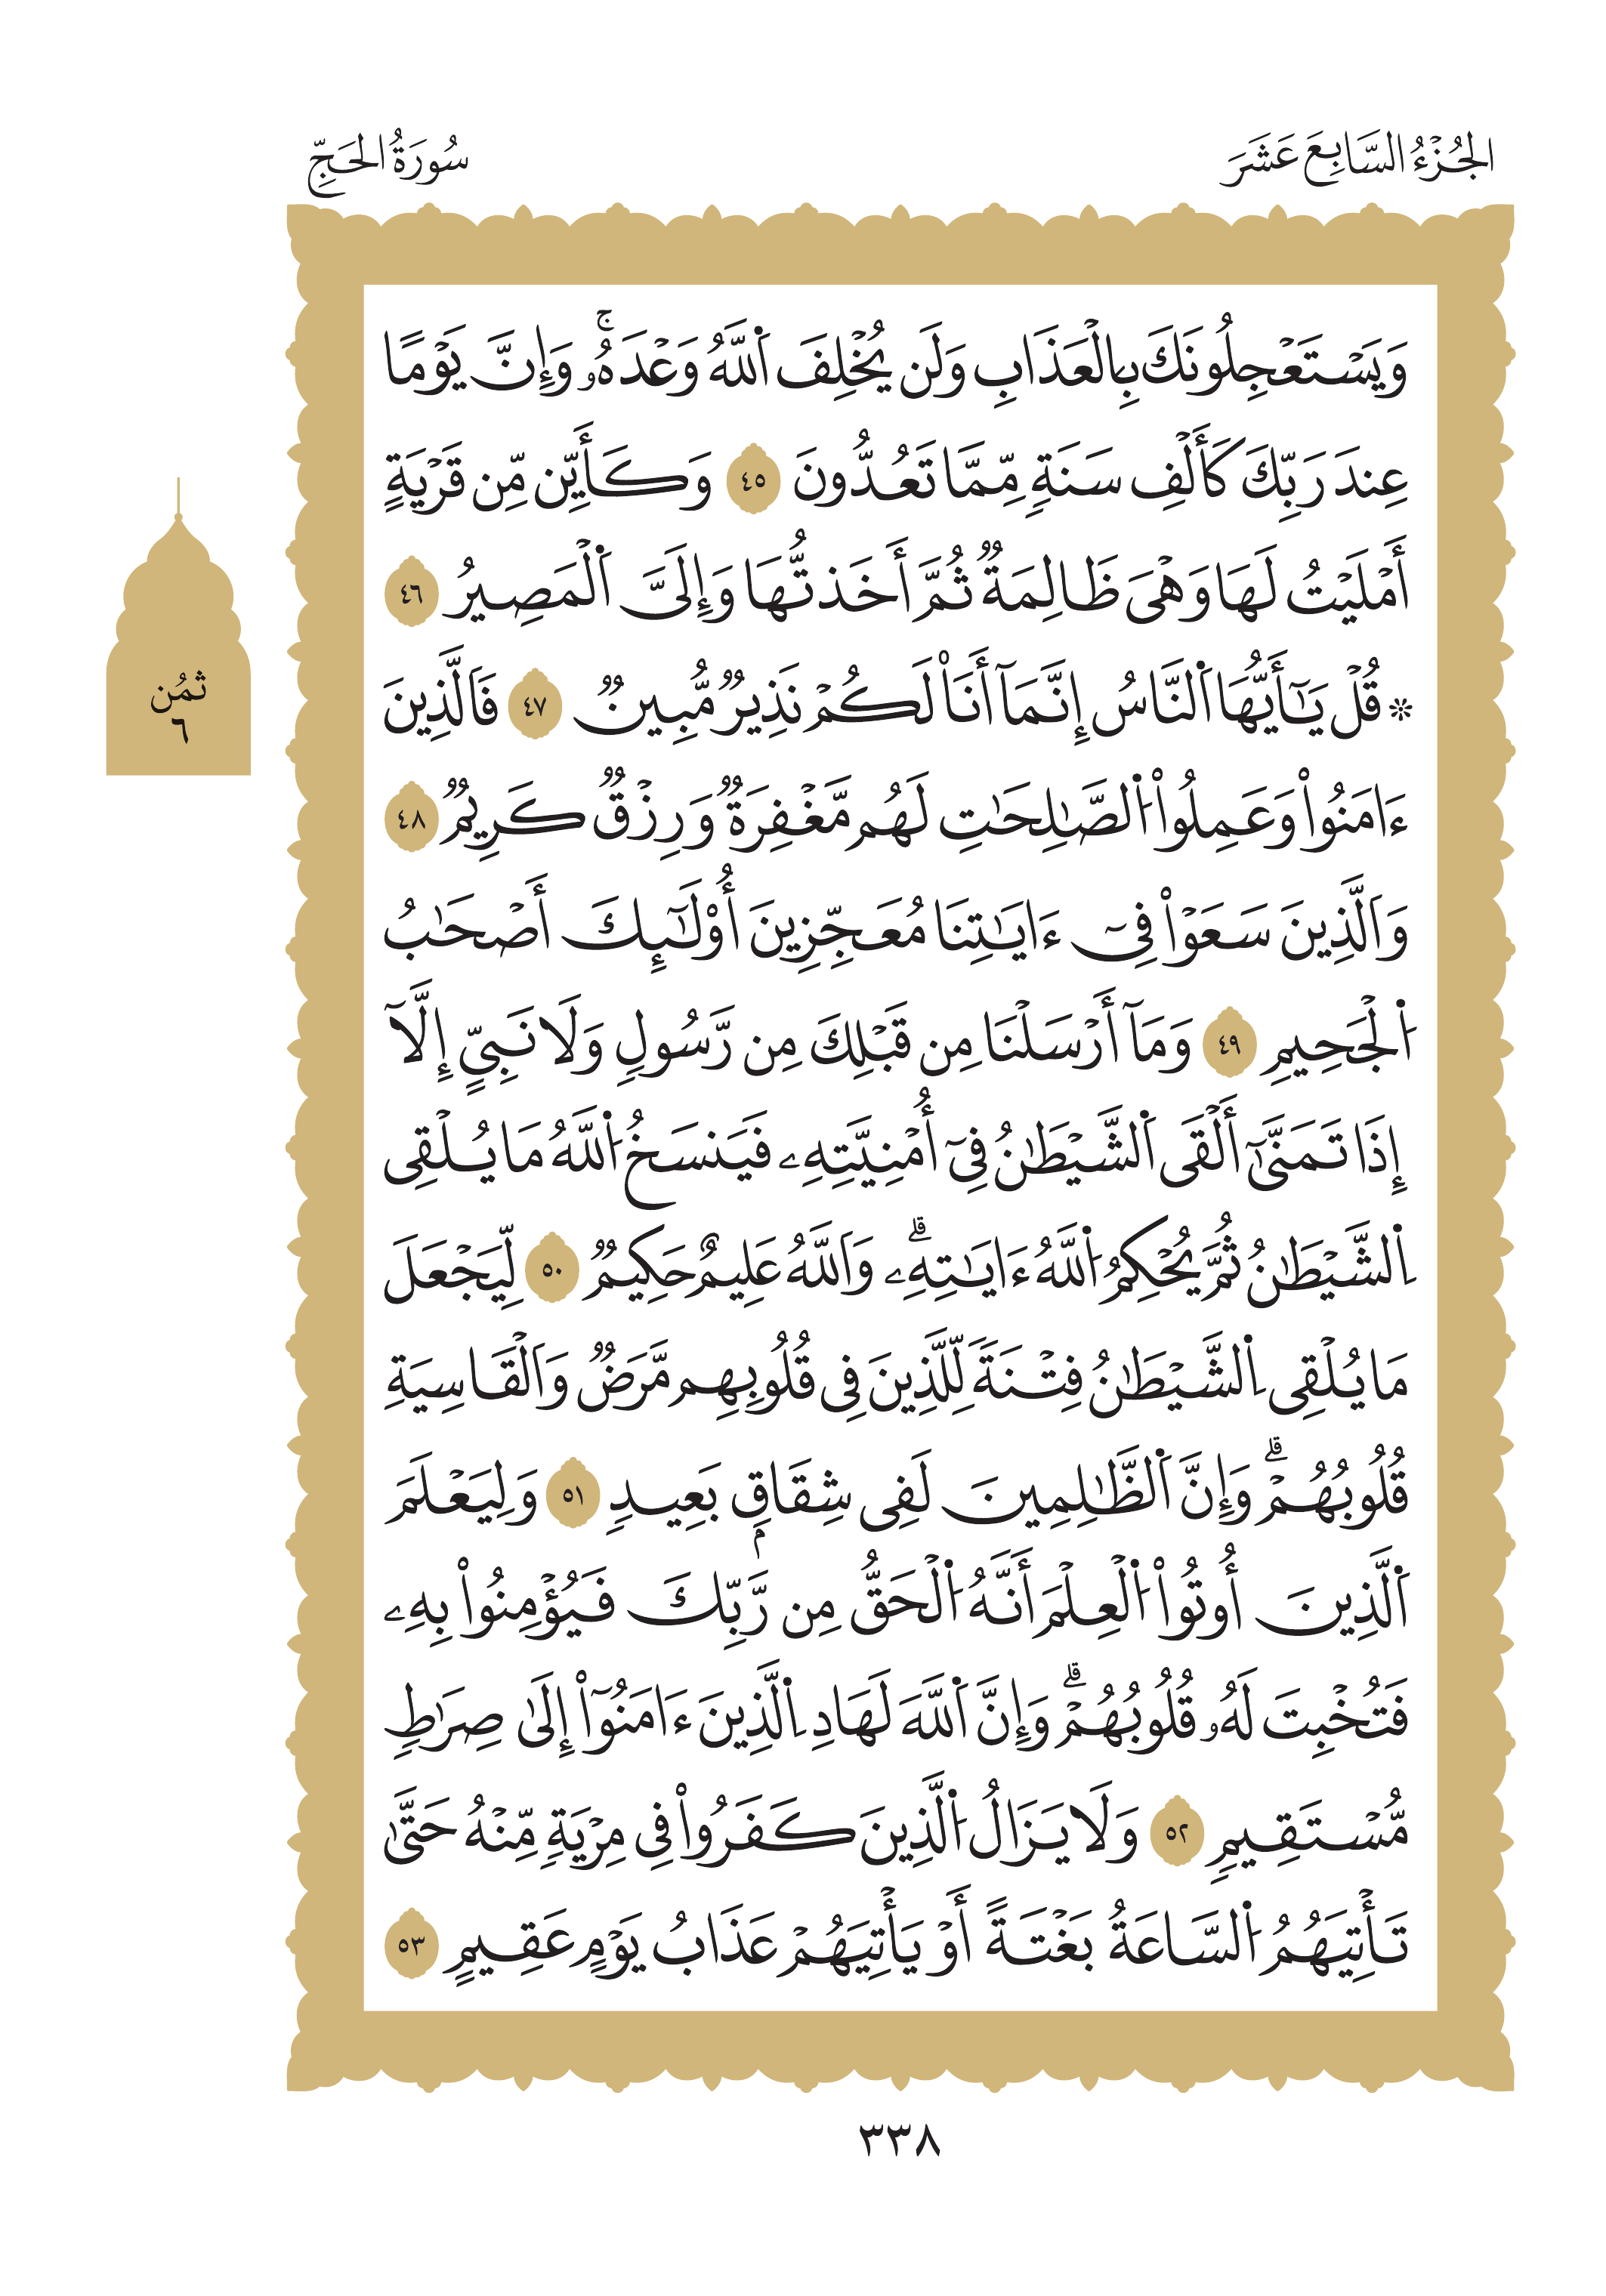 الجُزْءُ السَّابِعَ عَشَرَ
سُورَةُ الحَجِّ
وَيَسْتَعْجِلُونَكَ بِالْعَذَابِ وَلَن يُخْلِفَ اَ۬للَّهُ وَعْدَهُۥۚ وَإِنَّ يَوْمًا
عِندَ رَبِّكَ كَأَلْفِ سَنَةٍ مِّمَّا تَعُدُّونَ ٤٥ وَكَأَيِّن مِّن قَرْيَةٍ
أَمْلَيْتُ لَهَا وَهْيَ ظَالِمَةٌ ثُمَّ أَخَذتُّهَا وَإِلَيَّ اَ۬لْمَصِيرُ ٤٦
۞ قُلْ يَٰٓأَيُّهَا اَ۬لنَّاسُ إِنَّمَآ أَنَا۠ لَكُمْ نَذِيرٌ مُّبِينٌ ٤٧ فَالَّذِينَ
ءَامَنُواْ وَعَمِلُواْ اُ۬لصَّٰلِحَٰتِ لَهُم مَّغْفِرَةٌ وَرِزْقٌ كَرِيمٌ ٤٨
وَالَّذِينَ سَعَوْاْ فِےٓ ءَايَٰتِنَا مُعَجِّزِينَ أُوْلَٰٓئِكَ أَصْحَٰبُ
اُ۬لْجَحِيمِ ٤٩ وَمَآ أَرْسَلْنَا مِن قَبْلِكَ مِن رَّسُولٍ وَلَا نَبِيٍّ إِلَّآ
إِذَا تَمَنَّىٰٓ أَلْقَى اَ۬لشَّيْطَٰنُ فِےٓ أُمْنِيَّتِهِۦ فَيَنسَخُ اُ۬للَّهُ مَا يُلْقِى
اِ۬لشَّيْطَٰنُ ثُمَّ يُحْكِمُ اُ۬للَّهُ ءَايَٰتِهِۦۗ وَاللَّهُ عَلِيمٌ حَكِيمٌ ٥٠ لِّيَجْعَلَ
مَا يُلْقِى اِ۬لشَّيْطَٰنُ فِتْنَةً لِّلَّذِينَ فِى قُلُوبِهِم مَّرَضٌ وَالْقَاسِيَةِ
قُلُوبُهُمْۗ وَإِنَّ اَ۬لظَّٰلِمِينَ لَفِى شِقَاقٍۢ بَعِيدٍ ٥١ وَلِيَعْلَمَ
اَ۬لَّذِينَ أُوتُواْ اُ۬لْعِلْمَ أَنَّهُ اُ۬لْحَقُّ مِن رَّبِّكَ فَيُؤْمِنُواْ بِهِۦ
فَتُخْبِتَ لَهُۥ قُلُوبُهُمْۗ وَإِنَّ اَ۬للَّهَ لَهَادِ اِ۬لَّذِينَ ءَامَنُوٓاْ إِلَىٰ صِرَٰطٍ
مُّسْتَقِيمٍ ٥٢ وَلَا يَزَالُ اُ۬لَّذِينَ كَفَرُواْ فِى مِرْيَةٍ مِّنْهُ حَتَّىٰ
تَأْتِيَهُمُ اُ۬لسَّاعَةُ بَغْتَةً أَوْ يَأْتِيَهُمْ عَذَابُ يَوْمٍ عَقِيمٍ ٥٣
ثمُن
٦
٣٣٨